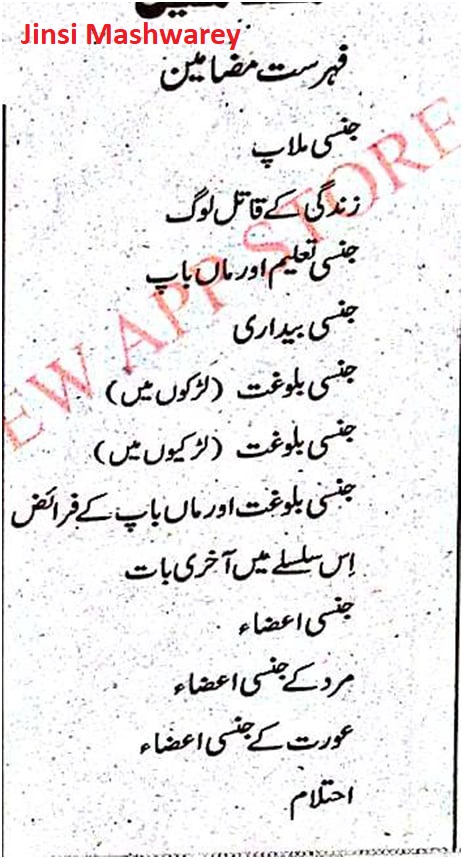 Jinsi Mashwarey
فہرست مضامین
جنسی ملاپ
زندگی کے قاتل لوگ
جنسی تعلیم اور ماں باپ
جنسی بیداری
جنسی بلوغت (لڑکوں میں)
جنسی بلوغت (لڑکیوں میں)
جنسی بلوغت اور ماں باپ کے فرائض
اِس سلسلے میں آخری بات
جنسی اعضاء
مرد کے جنسی اعضاء
عورت کے جنسی اعضاء
احتلام
EW APP STORE